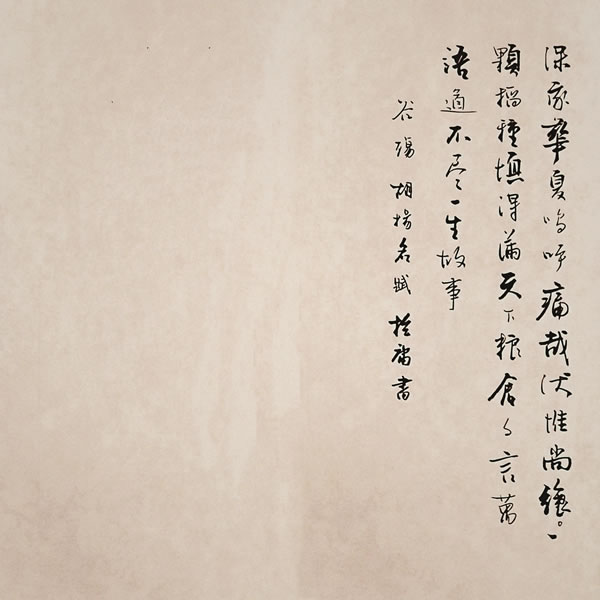 保家華夏嗚呼痛哉伏惟尚饗。一
顆稻種填得滿天下粮倉千言萬
語道不尽一生故事
谷殤 胡楊名賦 書